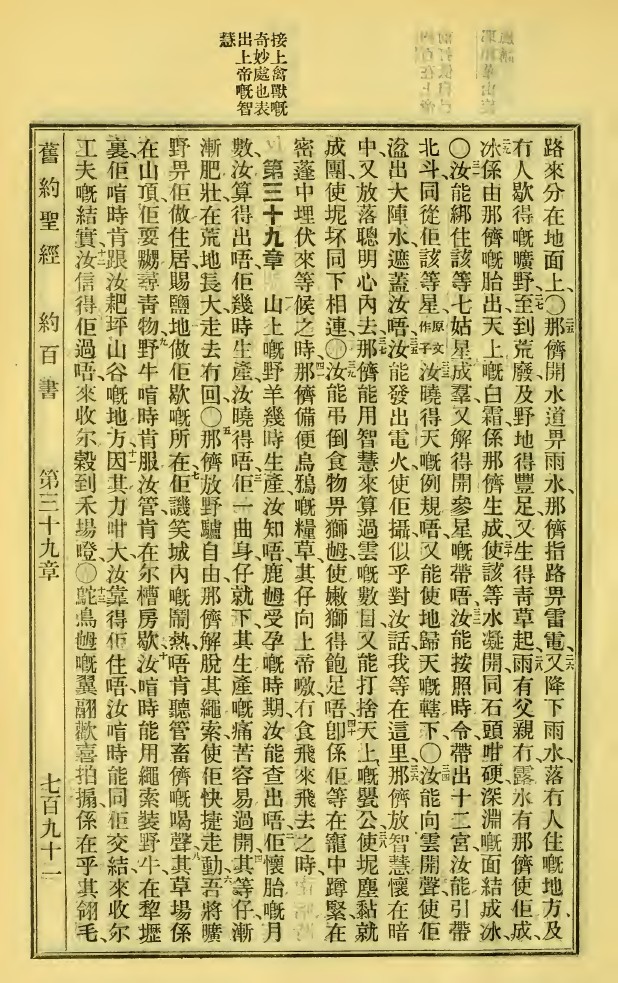 接上禽獸嘅
奇妙處也表
出上帝嘅智
慧
路來分在地面上、〇二五那儕開水道畀雨水、那儕指路畀雷電、二六又降下雨水、落冇人住嘅地方、及
冇人歇得嘅曠野、二七至到荒廢及野地得豐足、又生得青草起、二八雨有父親冇、露水有那儕使佢成、
二九冰係由那儕嘅胎出、天上嘅白霜係那儕生成、三十使該等水凝開同石頭咁硬、深淵嘅面結成冰、
〇三一汝能綁住該等七姑星成羣、又解得開參星嘅帶唔、三二汝能按照時令帶出十二宮、汝能引帶
北斗同從佢該等星、原文作子三三汝曉得天嘅例規唔、又能使地歸天嘅轄下、〇三四汝能向雲開聲、使佢
溢出大陣水遮蓋汝唔、三五汝能發出電火使佢攝、似乎對汝話、我等在這里、三六那儕放智慧懷在暗
中、又放落聰明心內去、三七那儕能用智慧來算過雲嘅數目、又能打捨天上嘅甖公、三八使坭塵黏就
成團、使坭坏同下相連、〇三九汝能弔倒食物畀獅𡜵、使嫩獅得飽足唔、四十卽係佢等在竉中蹲緊、在
密蓬中埋伏來等候之時、四一那儕備便烏鴉嘅糧草、其仔向上帝噭、冇食飛來飛去之時、
第三十九章 一山上嘅野羊幾時生產、汝知唔、鹿𡜵受孕嘅時期、汝能查出唔、二佢懷胎嘅月
數、汝算得出唔、佢幾時生產、汝曉得唔、三佢一曲身、仔就下、其生產嘅痛苦容易過開、四其等仔漸
漸肥壯、在荒地長大、走去冇回、〇五那儕放野驢自由、那儕解脫其繩索、使佢快捷走動、六吾將曠
野畀佢做住居、賜鹽地做佢歇嘅所在、七佢譏笑城內嘅鬧熱、唔肯聽管畜儕嘅喝聲、八其草場係
在山頂、佢耍嬲尋青物、九野牛喑時肯服汝管、肯在尔槽房歇、十汝喑時能用繩索裝野牛在犂壢
裏、佢喑時肯跟汝耙坪山谷嘅地方、十一因其力咁大、汝靠得佢住唔、汝喑時能同佢交結、來收尔
工夫嘅結實、十二汝信得佢過唔、來收尔穀到禾場噔、〇十三鴕鳥𡜵嘅翼翮歡喜拍搧、係在乎其翎毛、
舊約聖經 約百書 第三十九章 七百九十一